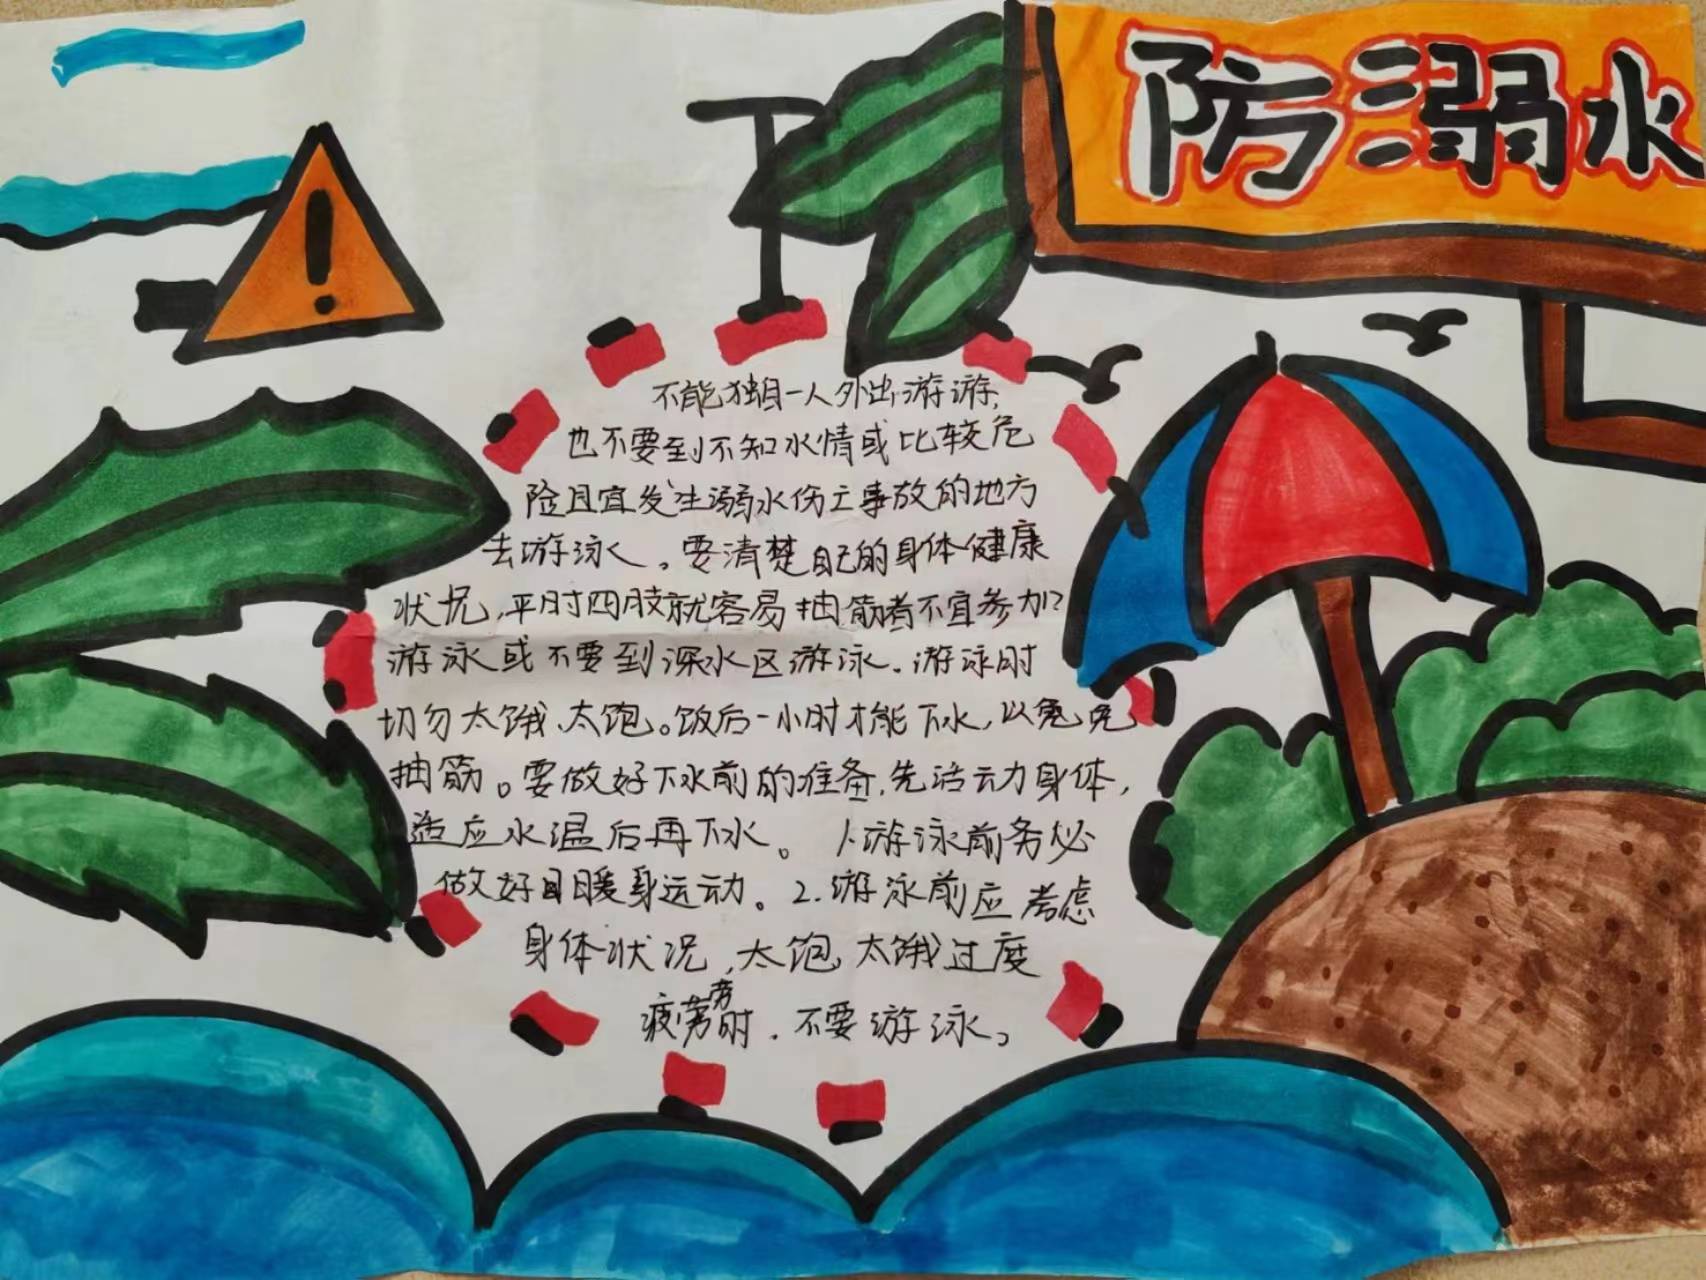 防溺水
不能独自一人外出游游,
也不要到不知水情或比较危
险且宜发生溺水伤亡事故的地方
去游泳。要清楚自己的身体健康
状况,平时四肢就容易抽筋者不宜参加
游泳或不要到深水区游泳.游泳时
切勿太饿、太饱。饭后一小时才能下水,以免
抽筋。要做好下水前的准备,先活动身体,
适应水温后再下水。1.游泳前务必
做好暖身运动。2.游泳前应考虑
身体状况,太饱,太饿过度
疲劳时.不要游泳。